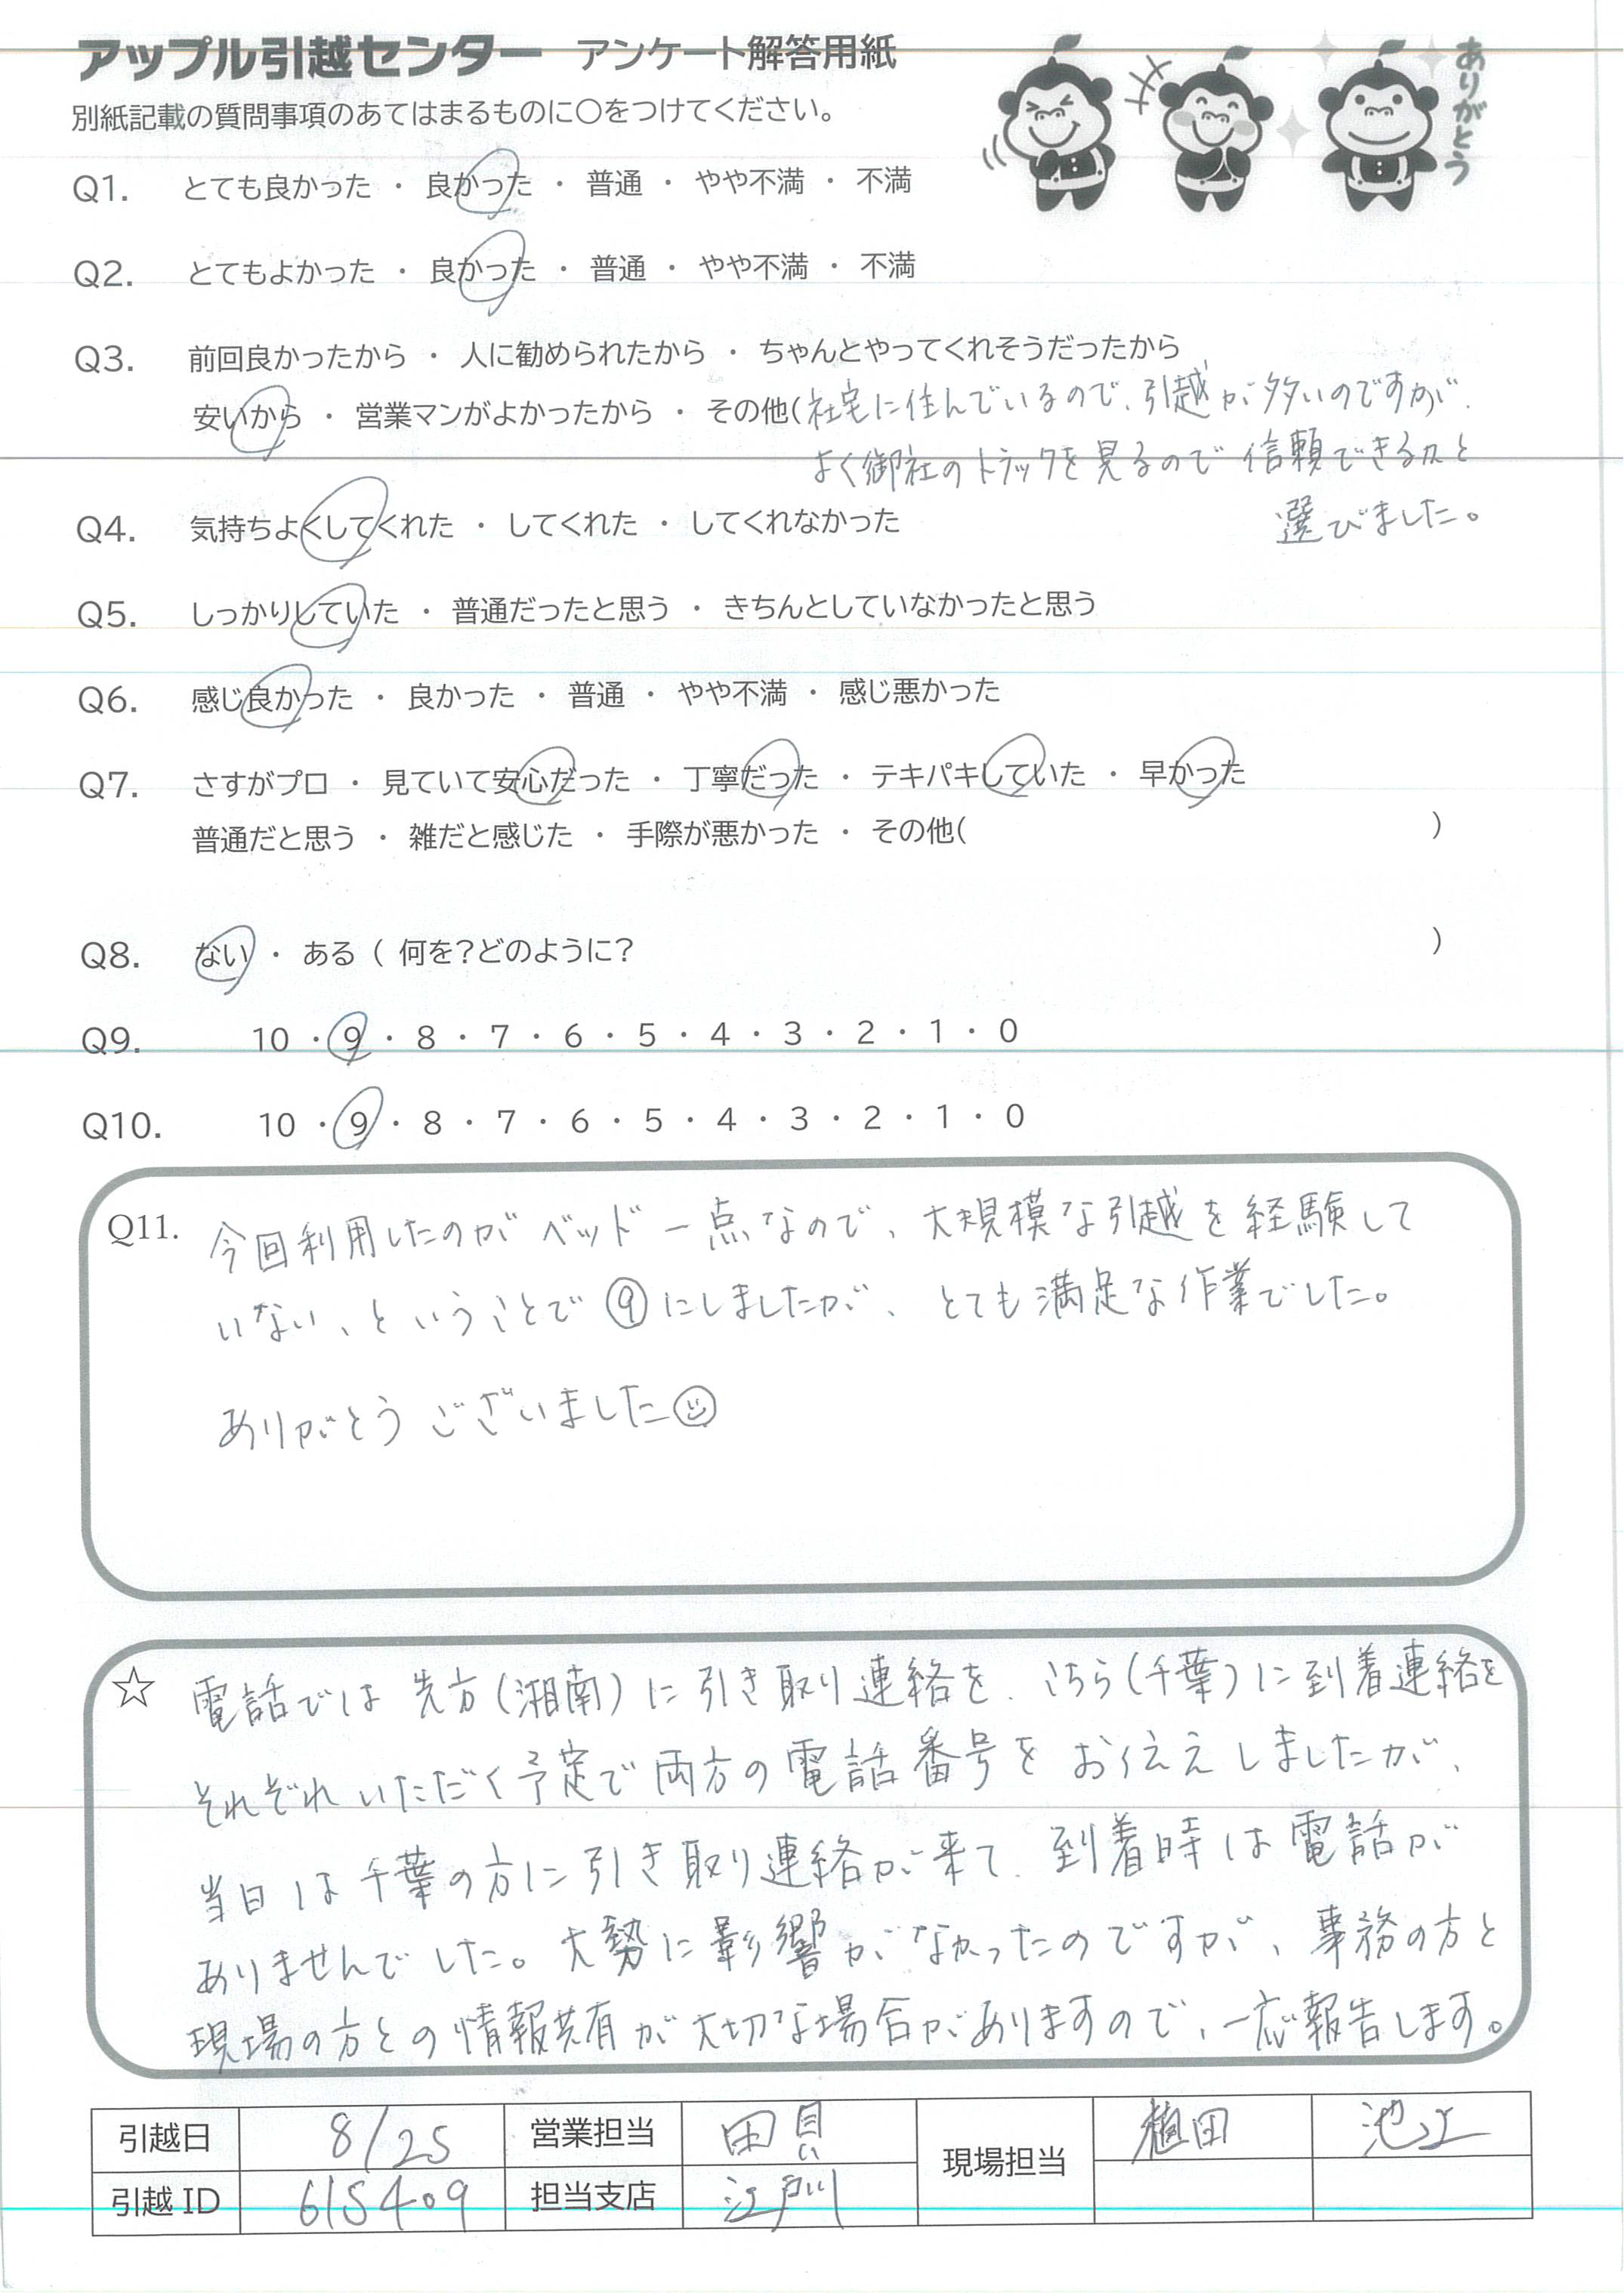 アップル引越センター アンケート解答用紙
ありがとう
別紙記載の質問事項のあてはまるものに○をつけてください。
Q1. とても良かった ・ 良かった ・ 普通 ・ やや不満 ・ 不満
Q2. とてもよかった ・ 良かった ・ 普通 ・ やや不満 ・ 不満
Q3. 前回良かったから ・ 人に勧められたから ・ ちゃんとやってくれそうだったから
安いから ・ 営業マンがよかったから ・ その他(社宅に住んでいるので、引越が多いのですが、
よく御社のトラックを見るので信頼できるカと
選びました。
Q4. 気持ちよくしてくれた ・ してくれた ・ してくれなかった
Q5. しっかりしていた ・ 普通だったと思う ・ きちんとしていなかったと思う
Q6. 感じ良かった ・ 良かった ・ 普通 ・ やや不満 ・ 感じ悪かった
Q7. さすがプロ ・ 見ていて安心だった ・ 丁寧だった ・ テキパキしていた ・ 早かった
普通だと思う ・ 雑だと感じた ・ 手際が悪かった ・ その他( )
Q8. ない ・ ある ( 何を?どのように? )
Q9. 10 ・ 9 ・ 8 ・ 7 ・ 6 ・ 5 ・ 4 ・ 3 ・ 2 ・ 1 ・ 0
Q10. 10 ・ 9 ・ 8 ・ 7 ・ 6 ・ 5 ・ 4 ・ 3 ・ 2 ・ 1 ・ 0
Q11. 今回利用したのがベッド一点なので、大規模な引越を経験して
いない、ということで⑨にしましたが、とても満足な作業でした。
ありがとうございました☺
☆ 電話では先方(湘南)に引き取り連絡を、こちら(千葉)に到着連絡を
それぞれいただく予定で両方の電話番号をお伝えしましたが、
当日は千葉の方に引き取り連絡が来て、到着時は電話が
ありませんでした。大勢に影響がなかったのですが、事務の方と
現場の方との情報共有が大切な場合がありますので、一応報告します。
引越日 8/25 営業担当 現場担当 植田 池上
引越ID 615409 担当支店 江戸川